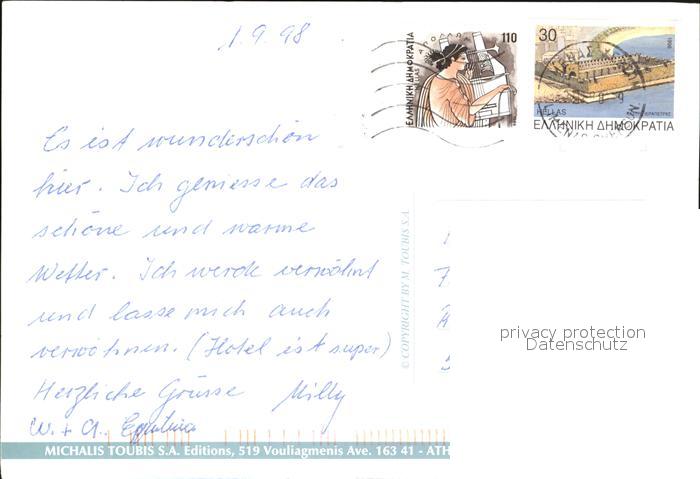 1.9.98
110
ΕΛΛΗΝΙΚΗ ΔΗΜΟΚΡΑΤΙΑ
HELLAS
30
HELLAS
ΕΛΛΗΝΙΚΗ ΔΗΜΟΚΡΑΤΙΑ
Es ist wunderschön
hier. Ich geniesse das
schöne und warme
Wetter. Ich werde verwöhnt
und lasse mich auch
verwöhnen. (Hotel ist super)
Herzliche Grüsse Milly
W. + A.
© COPYRIGHT BY M. TOUBIS S.A.
privacy protection
Datenschutz
MICHALIS TOUBIS S.A. Editions, 519 Vouliagmenis Ave. 163 41 - ATH